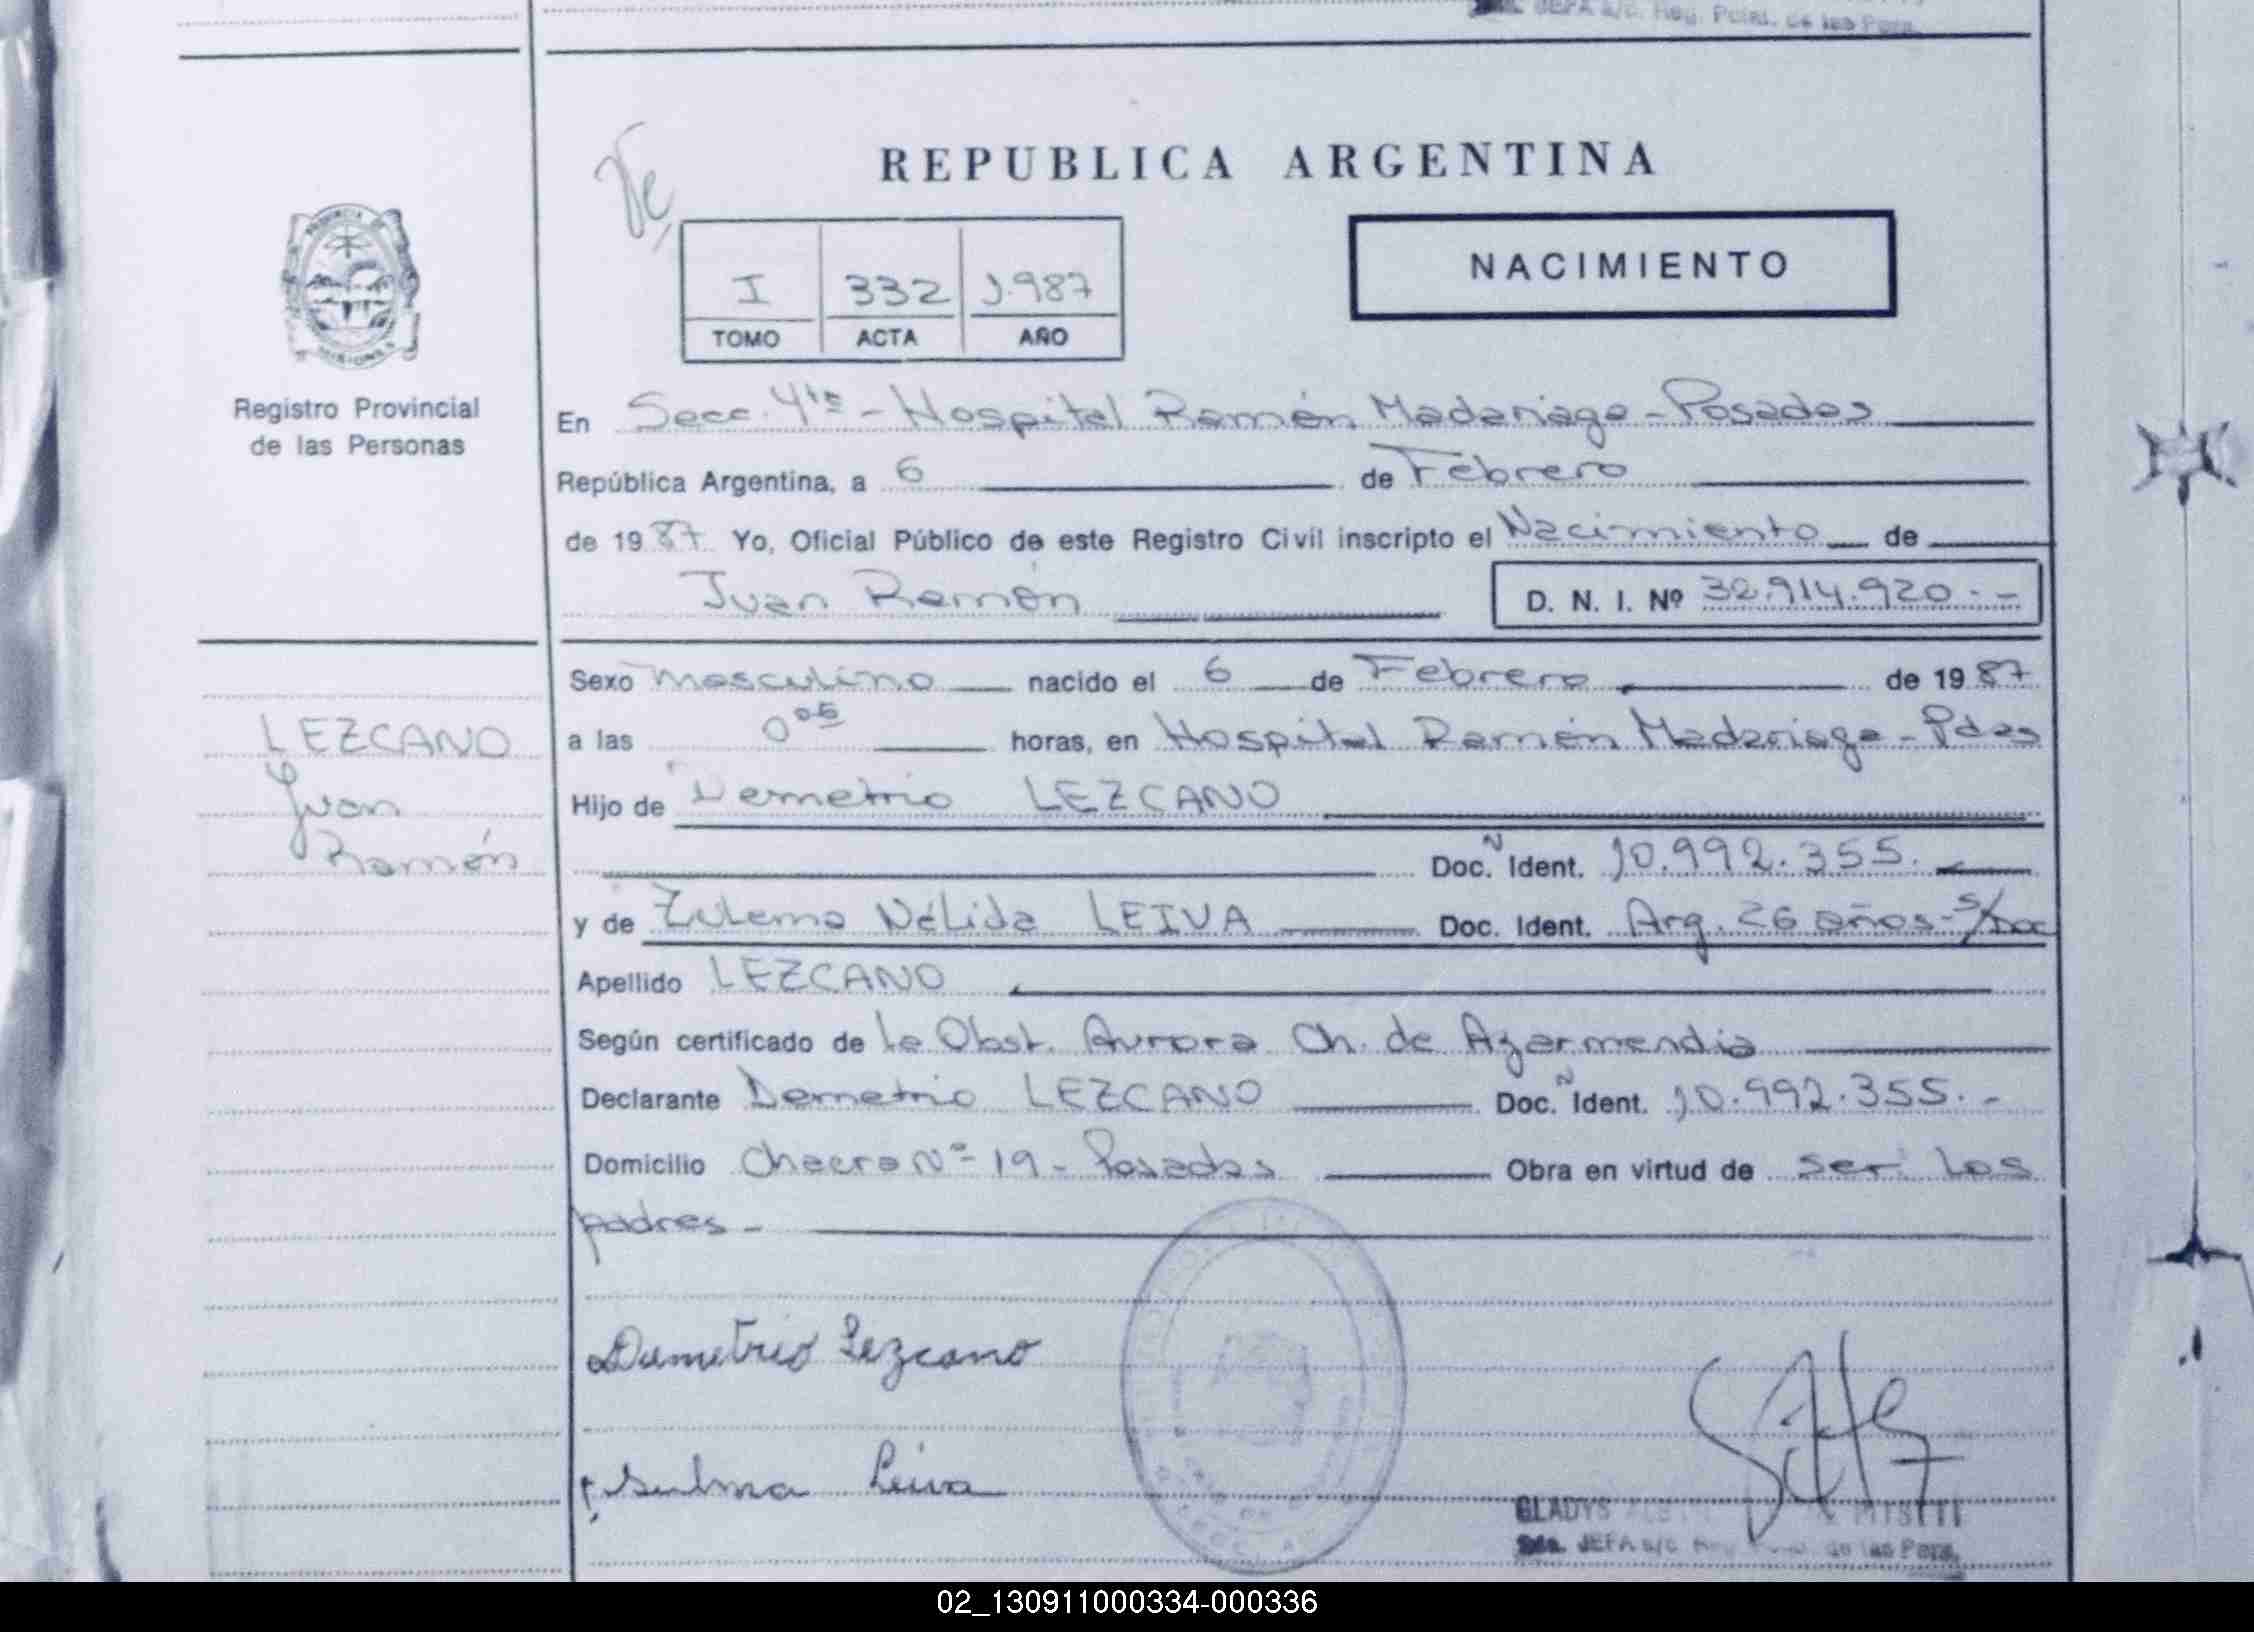 JEFA a/c. Reg. Pcial. de las Pers.
REPUBLICA ARGENTINA
NACIMIENTO
I 332 1.987
TOMO ACTA AÑO
Registro Provincial
de las Personas
En Secc. 4ta - Hospital Ramón Madariaga - Posadas
República Argentina, a 6 de Febrero
de 1987 Yo, Oficial Público de este Registro Civil inscripto el Nacimiento de
Juan Ramón D. N. I. Nº 32.914.920.-
Sexo Masculino nacido el 6 de Febrero de 1987
LEZCANO
Juan
Ramón
a las 0 05 horas, en Hospital Ramón Madariaga - Pdas
Hijo de Demetrio LEZCANO
Doc. N Ident. 10.992.355.
y de Zulema Nélida LEIVA Doc. Ident. Arg. 26 años - s/Doc
Apellido LEZCANO
Según certificado de la Obst. Aurora Ch. de Azarmendia
Declarante Demetrio LEZCANO Doc. N Ident. 10.992.355.-
Domicilio Chacra Nº 19 - Posadas Obra en virtud de ser los
padres -
Demetrio Lezcano
Leiva
GLADYS
JEFA a/c de las Pers.
02_130911000334-000336